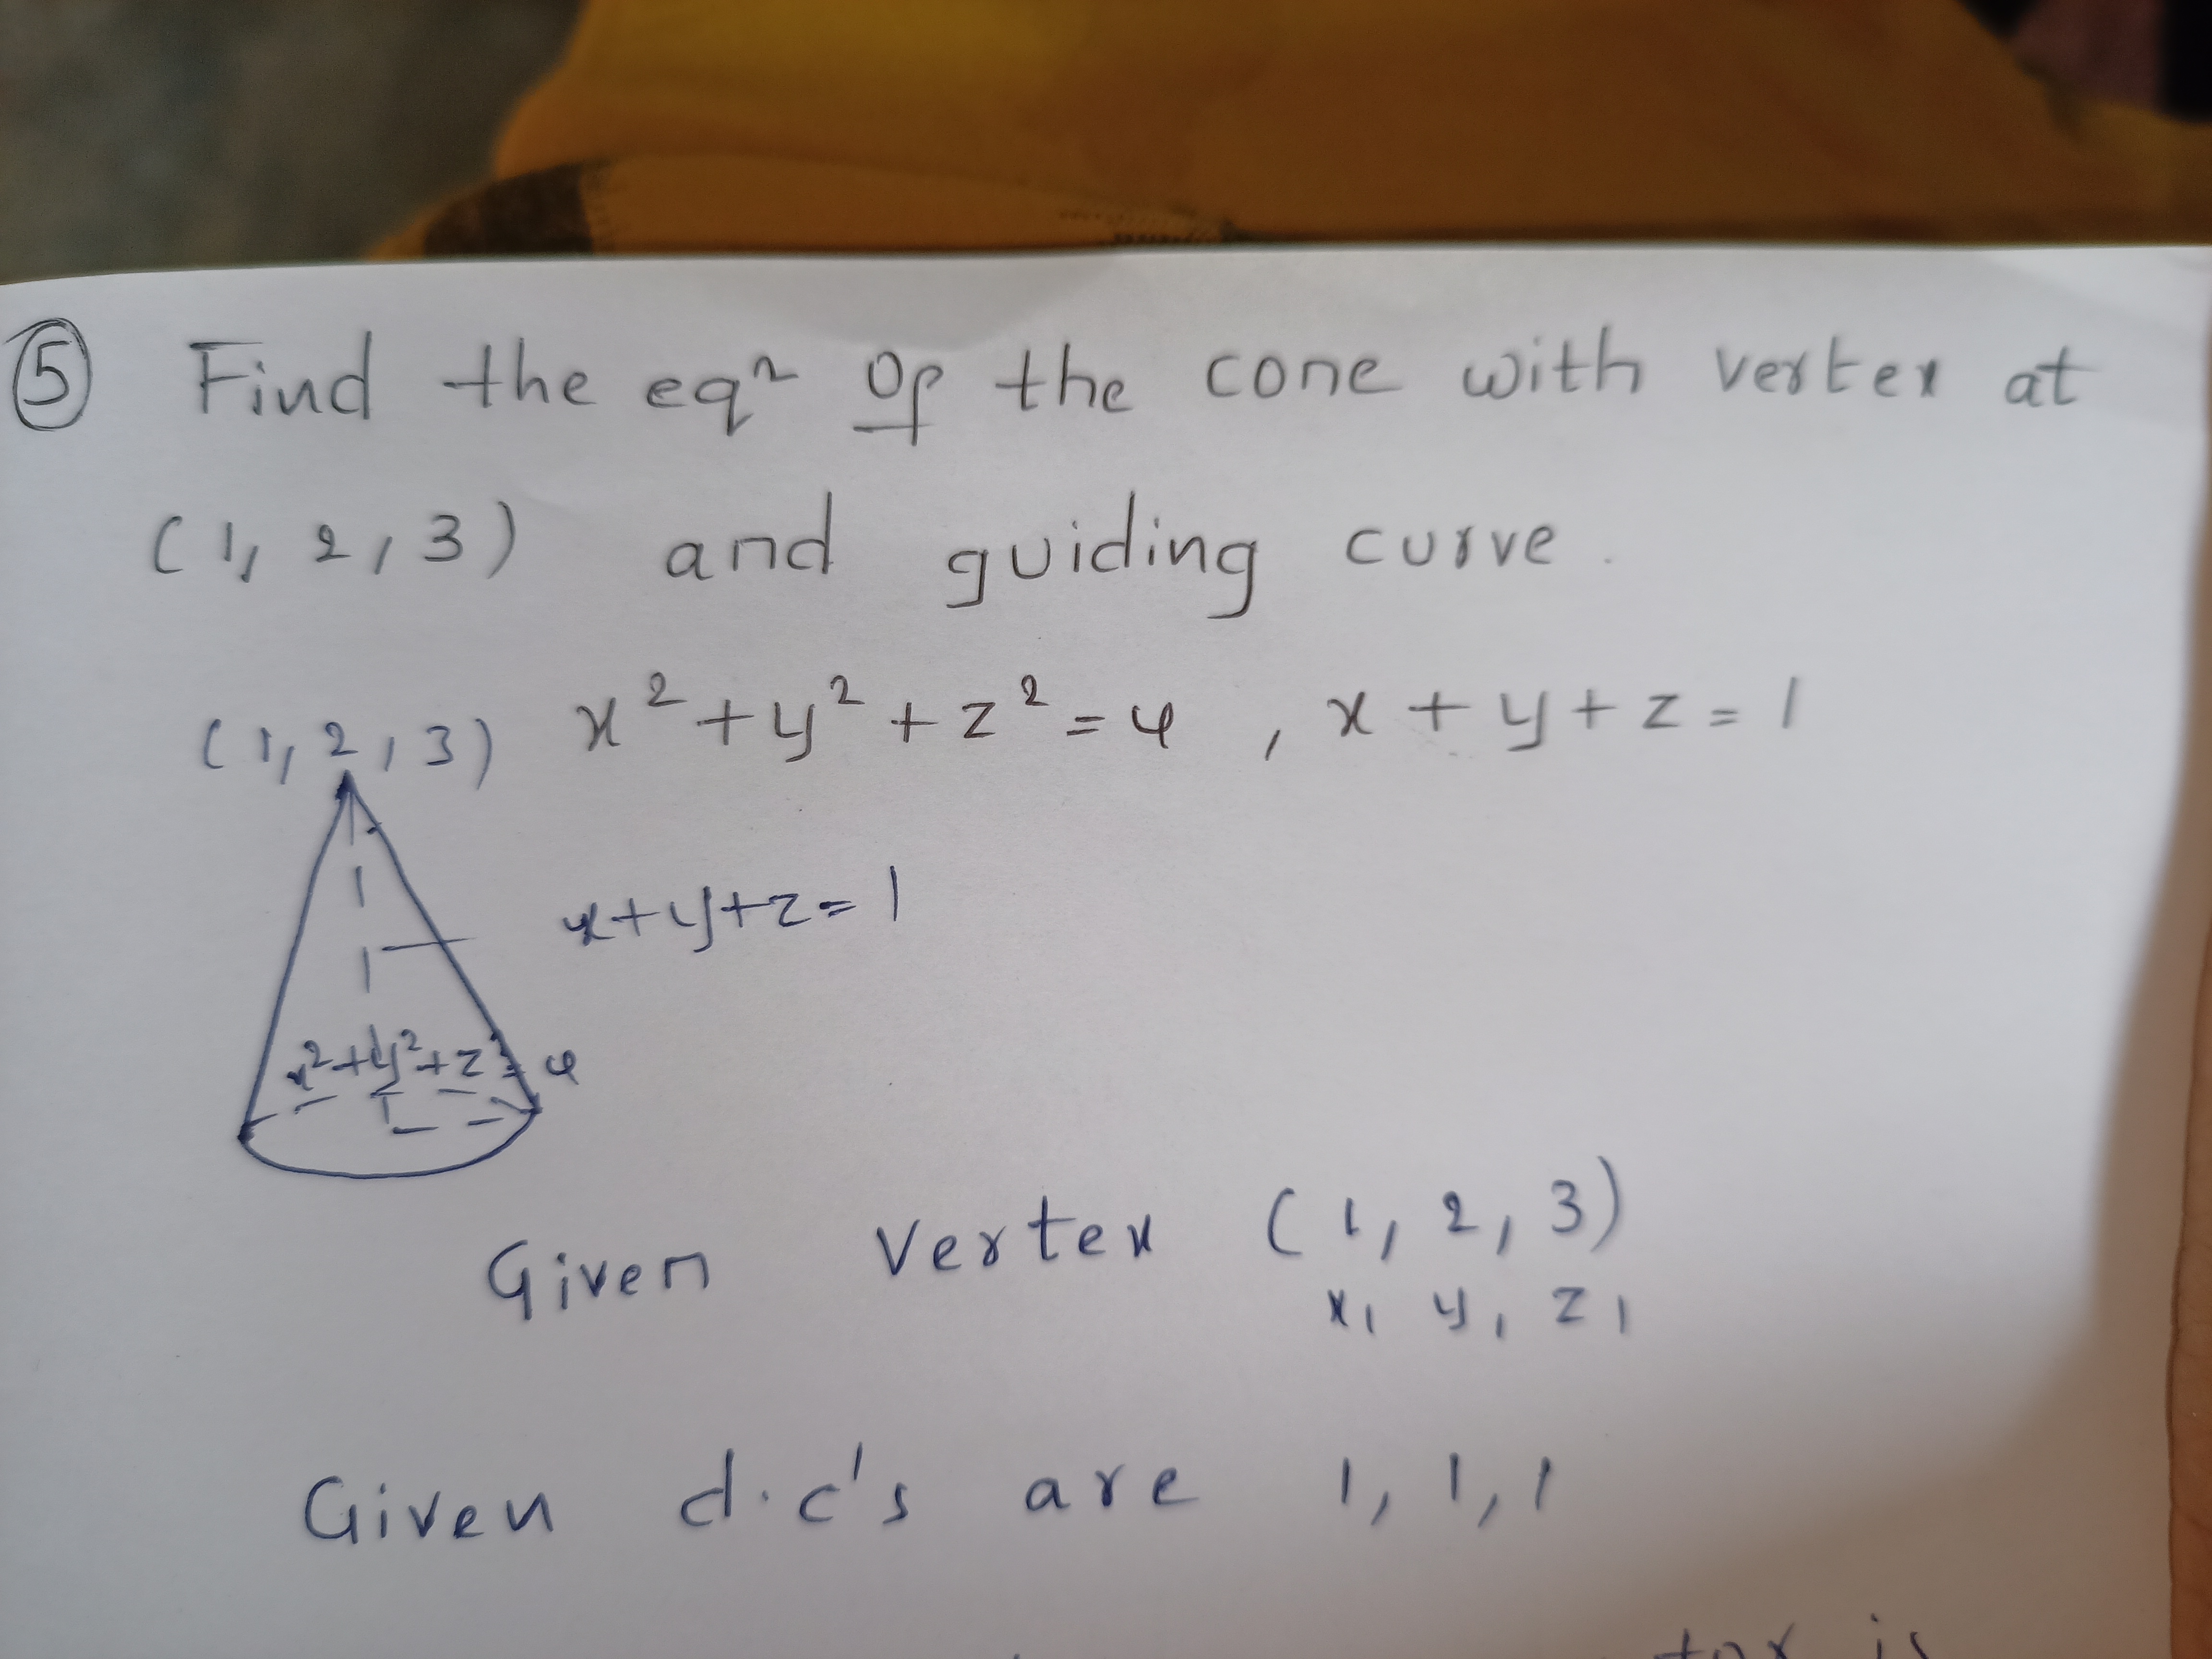 ⑤ Find the eqⁿ of the cone with vertex at
(1, 2, 3) and guiding curve.
x² + y² + z² = 4 , x + y + z = 1
(1, 2, 3)
x+y+z=1
x²+y²+z²=4
Given Vertex (1, 2, 3)
x₁ y₁ z₁
Given d.c's are 1, 1, 1
is